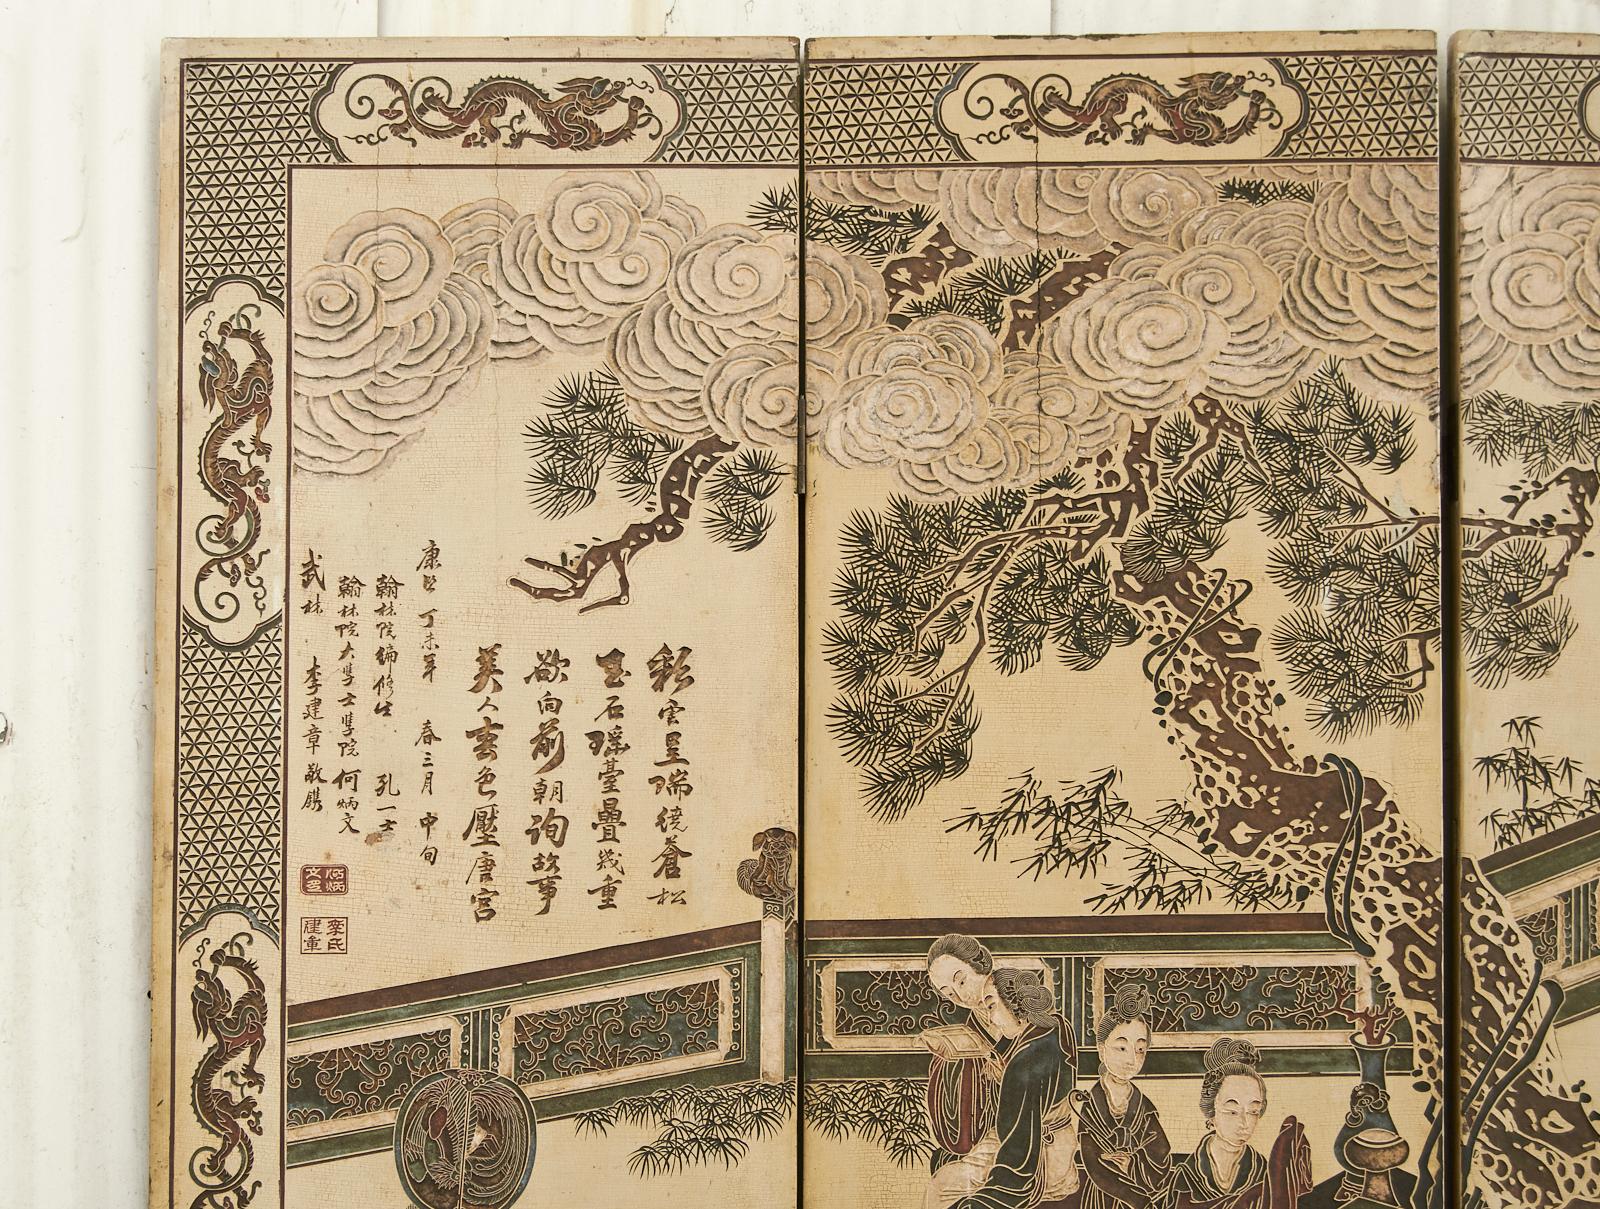 彩雲呈瑞繞蒼松
玉石瑤臺疊幾重
欲向前朝詢故事
美人春色壓唐宮
康熙丁未年 春三月 中旬
翰林院編修生 孔一士
翰林院大學士學院 何炳文
武林 李建章敬鐫
何炳文印
李氏建章